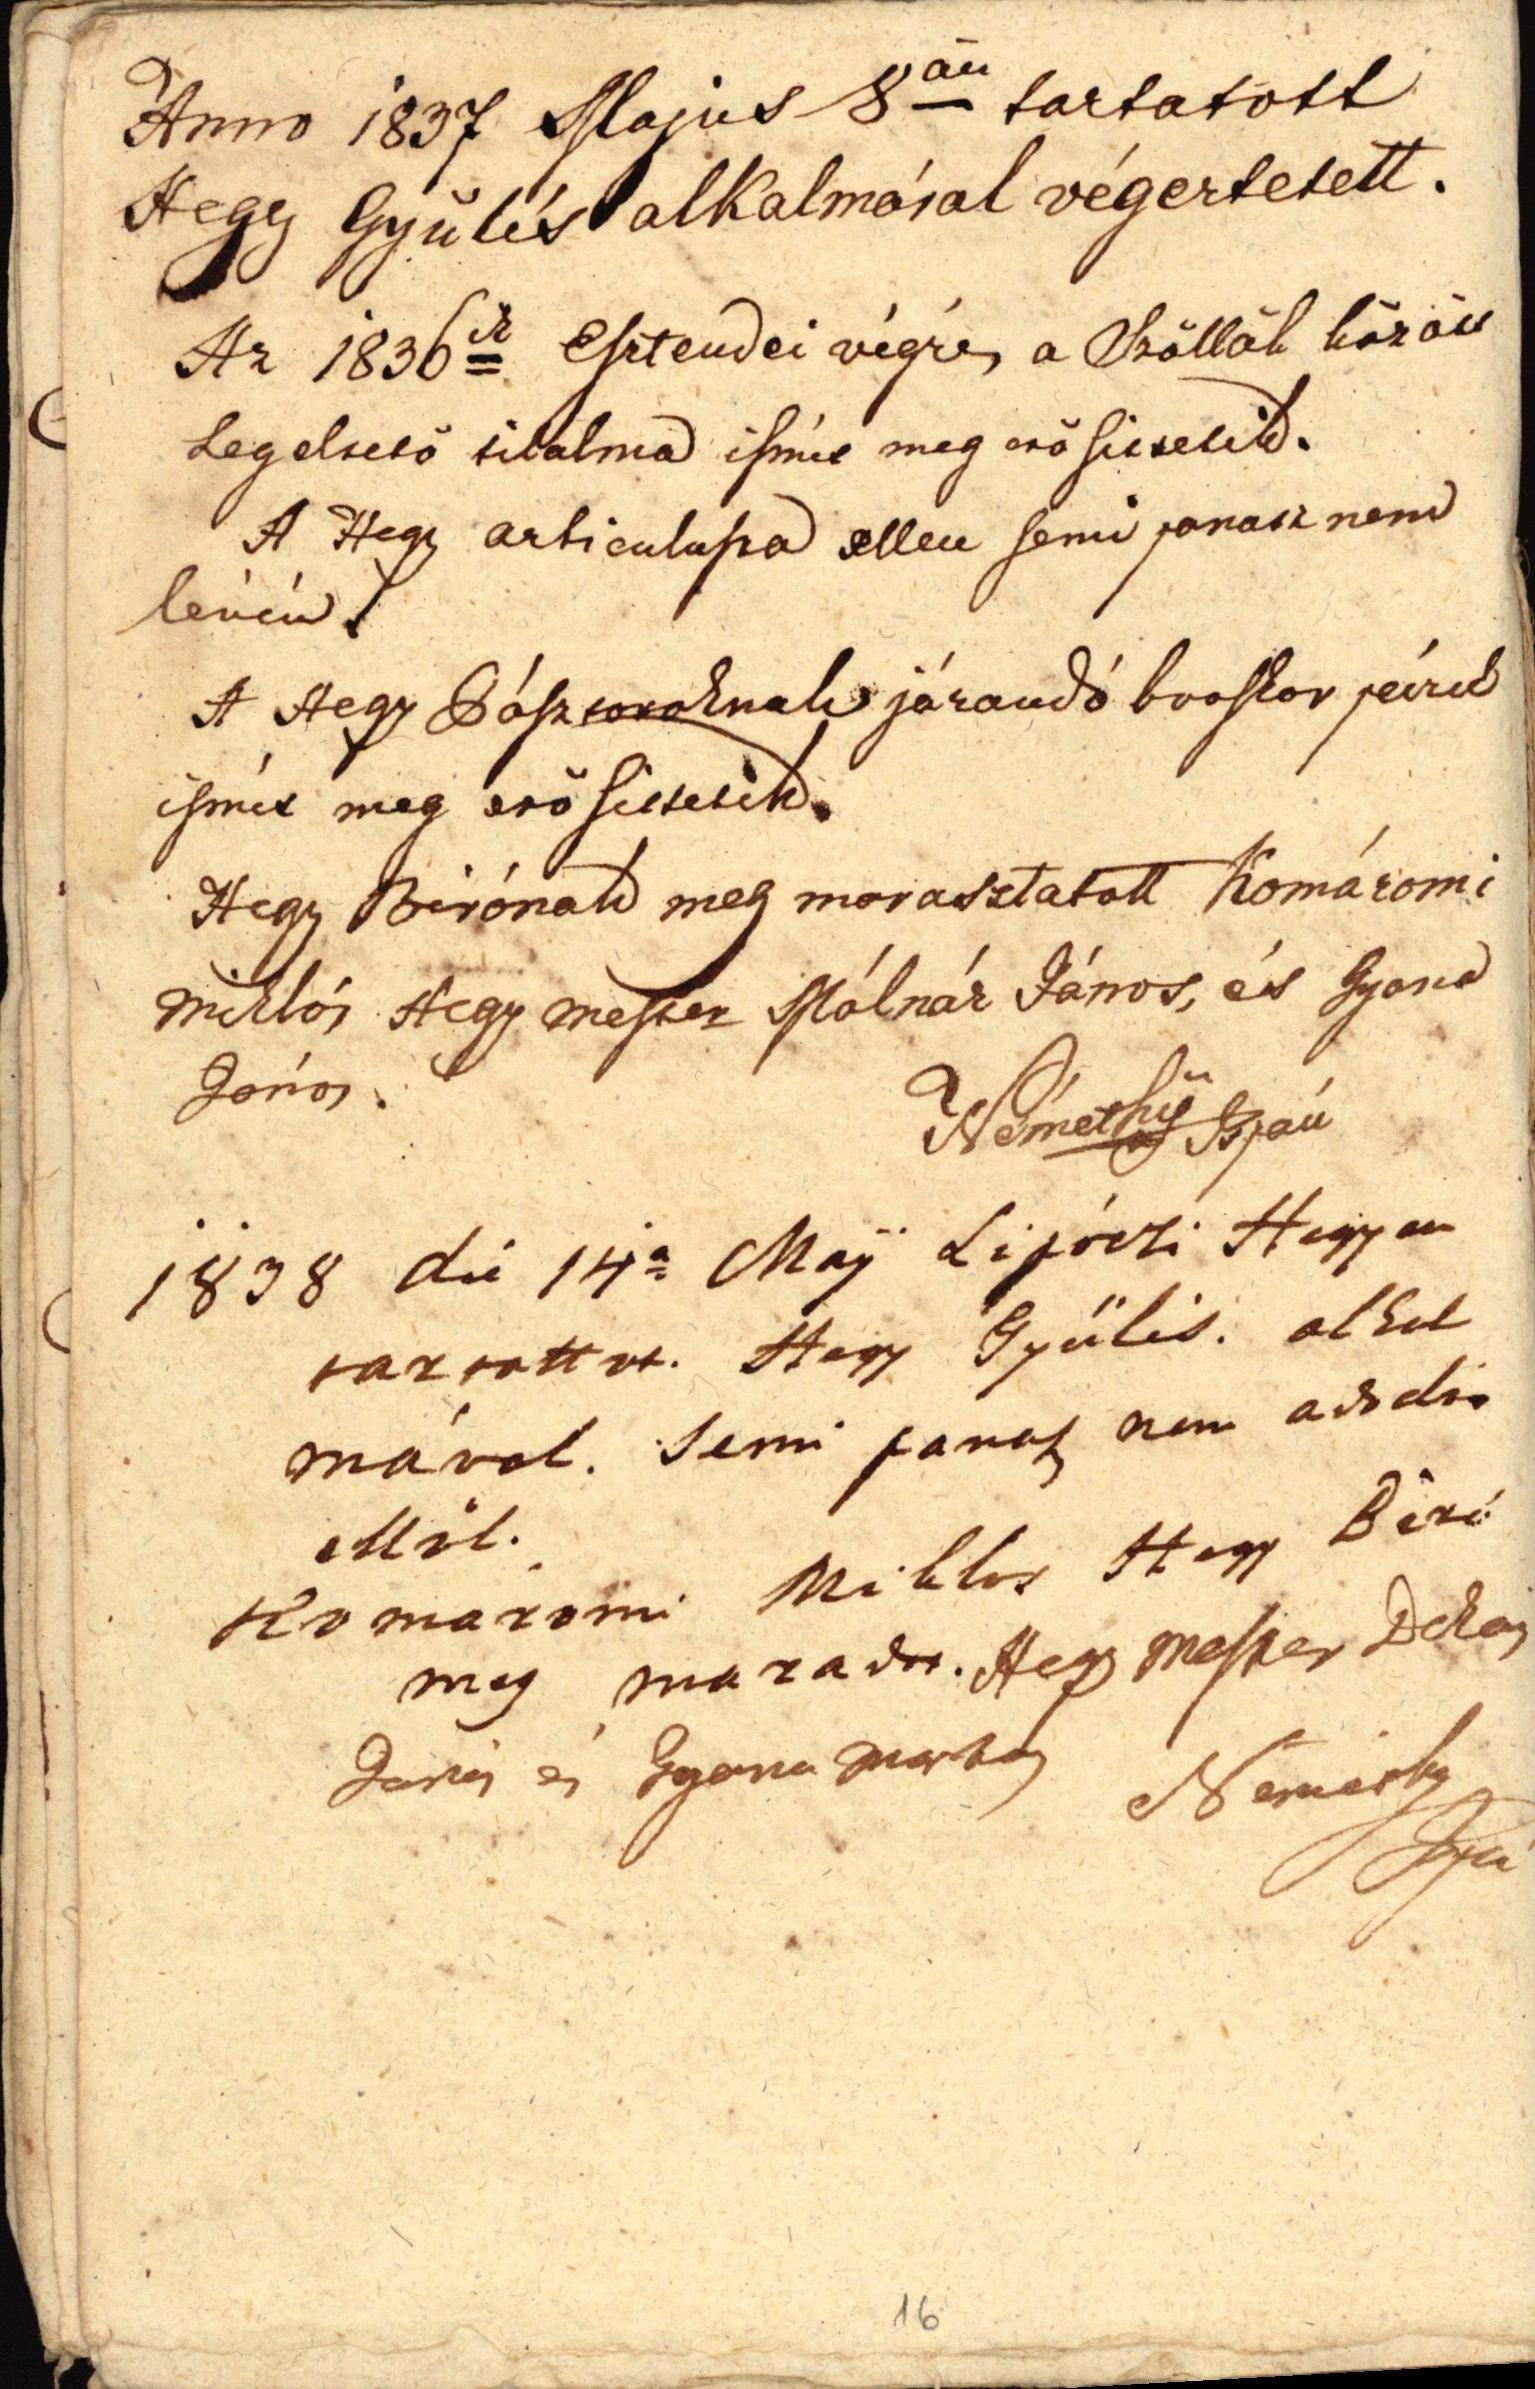 Anno 1837 Majus 8án tartatott
Hegy Gyűlés alkalmásal végertetett.
Az 1836ik Esztendei végzés, a Szőllők közöt
Legeltető tilalma ismét meg erősittetik.
A Hegy articulussa ellen semi panasz nem
lévén.
A Hegy Pásztoroknak járandó bocskor pénz
ismét meg erősittetik.
Hegy Birónak meg marasztatott Komáromi
Miklós Hegy Mester Mólnár János, és Gyana
János.
Némethy Ispán
1838 die 14a Maÿ Lipóczi Hegyen
tartottot. Hegy Gyűlés. alkal
mával. Semi panasz nem adodot
ellől.
Komáromi Miklos Hegy Biró
meg maradot. Hegy Mester
János és Gyana
Némethy
Ispán
16